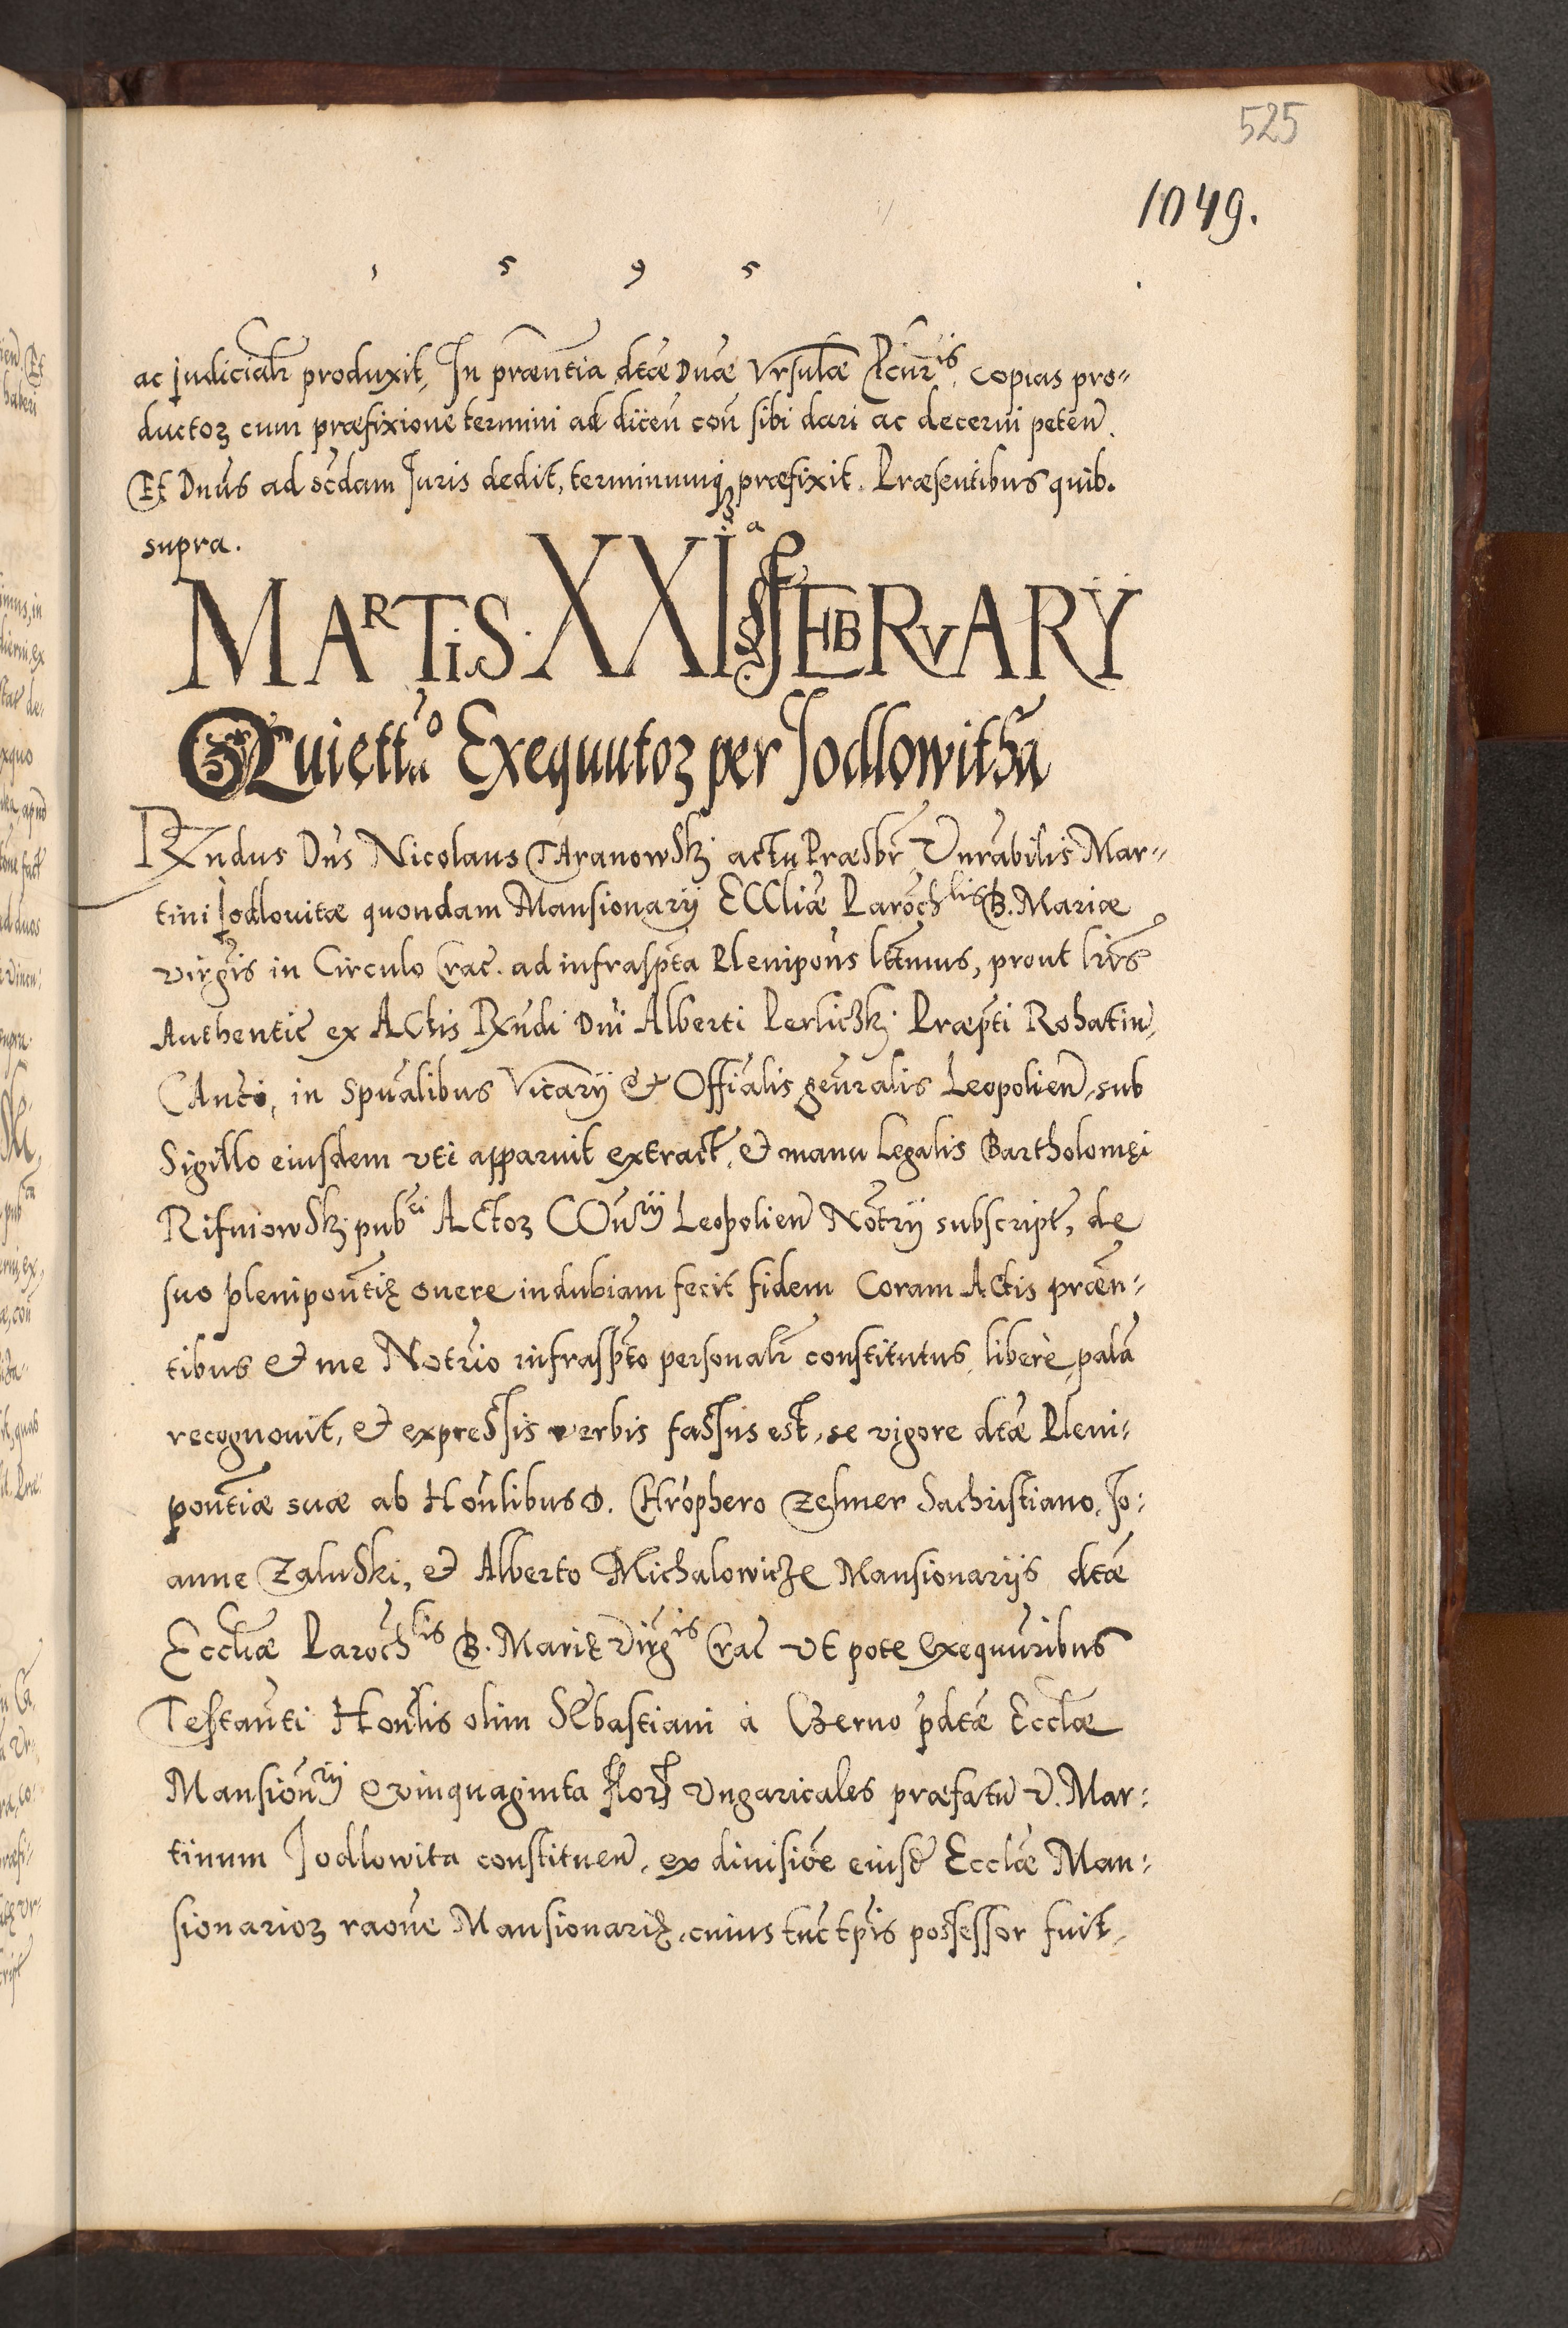 525
1049.
1 5 9 5
ac judicialr produxit, In præntia dtæ Dnæ Vrsulæ copias pro=
ductoꝝ cum præfixione termini ad dicen con sibi dari ac decerni peten.
Et Dnus ad scdam Juris dedit, terminumqꝫ præfixit. Præsentibus quib.
supra.
MARTIS XXI FEBRVARY
Quiettio Exequutoꝝ per Jodlowitha
Rndus Dns Nicolaus Taranowskj actu Præsbr Vnrabilis Mar=
tini Jodlovitæ quondam Mansionarij Eccliæ Parochlis B. Mariæ
virgis in Circulo Crac. ad infraspta Plenipons lttmus, prout lirs
Authentic ex Actis Rndi Dni Alberti Perliczkj Præpti Rohatin,
Canci, in spualibus Vicarij & Offialis genralis Leopolien, sub
Sigillo eiusdem vti apparuit extract, & manu Legalis Bartholomęi
Rifinowskj pubci Actoꝝ Conrij Leopolien Notrij subscript, de
suo plenipontię onere indubiam fecit fidem Coram Actis præn=
tibus & me Notrio infraspto personalr constitutus, liberè, palã
recognouit, & expressis verbis fassus est, se vigore dtæ Pleni=
pontiæ suæ ab Honlibus D. Chrophero Zelmer Sachristiano, Jo=
anne Zaluski, & Alberto Michalowicze Mansionarijs dtæ
Eccliæ Parochlis B. Marię Virgis Crac vt pote Exequuribus
Testanti Honlis olim Sebastiani à Czerno pdtæ Ecclæ
Mansionrij Qvinquaginta flors Vngaricales præfatũ V. Mar=
tinum Jodlowita constituen, ex divisiõe eiusd Ecclæ Man=
sionarioꝝ raone Mansionarię, cuius tunc tpis possessor fuit,